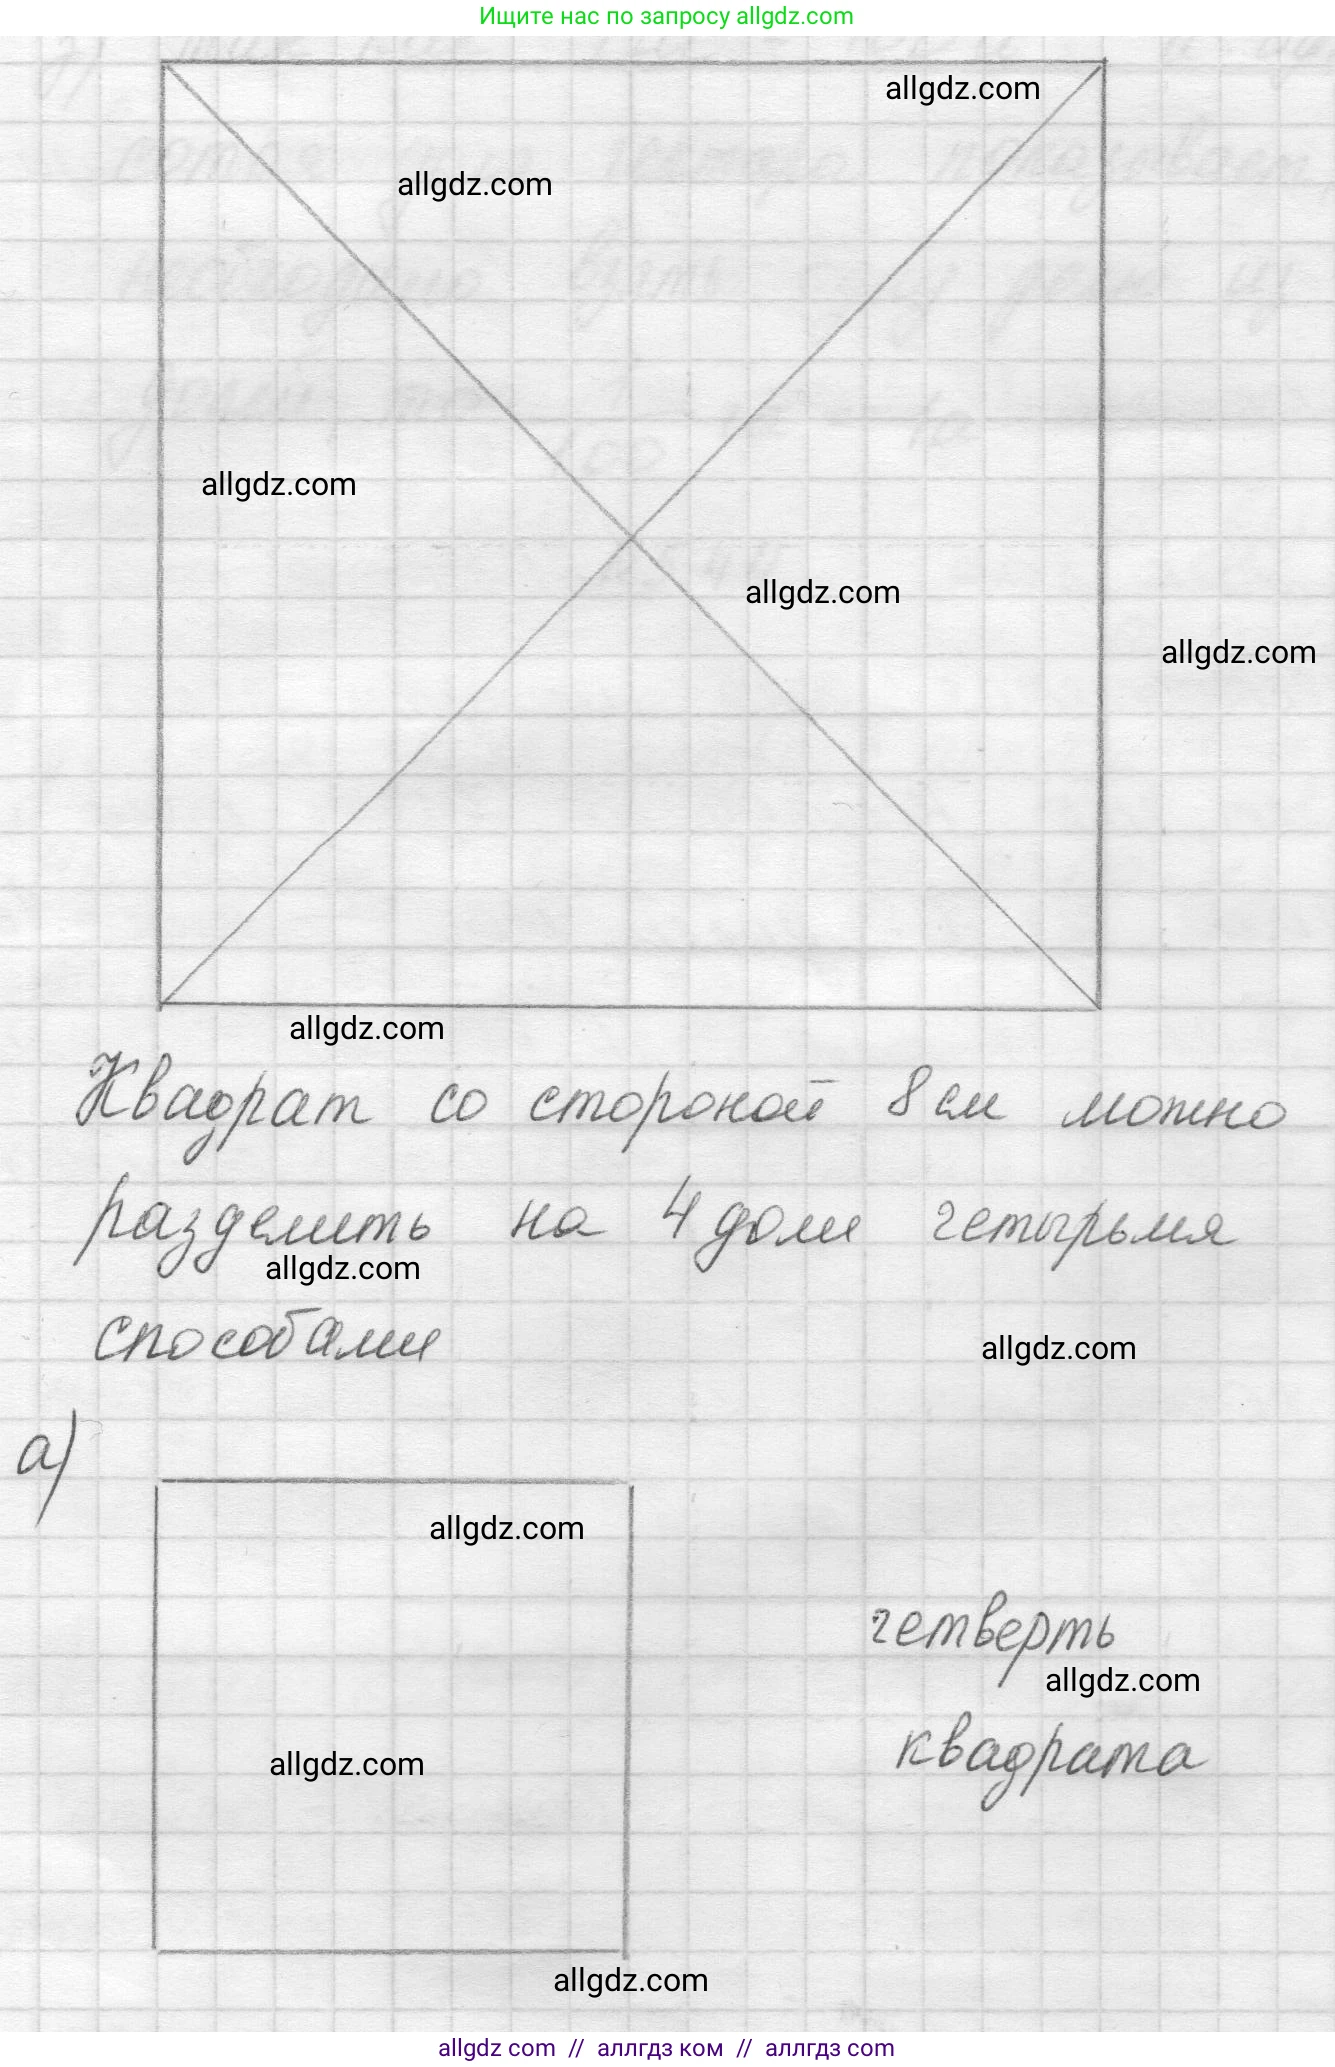 Ищите нас по запросу allgdz.com
allgdz.com
allgdz.com
allgdz.com
allgdz.com
allgdz.com
allgdz.com
Квадрат со стороной 8 см можно
разделить на 4 доли четырьмя
allgdz.com
способами
allgdz.com
а)
allgdz.com
четверть
allgdz.com
квадрата
allgdz.com
allgdz.com
allgdz com // аллгдз ком // аллгдз com